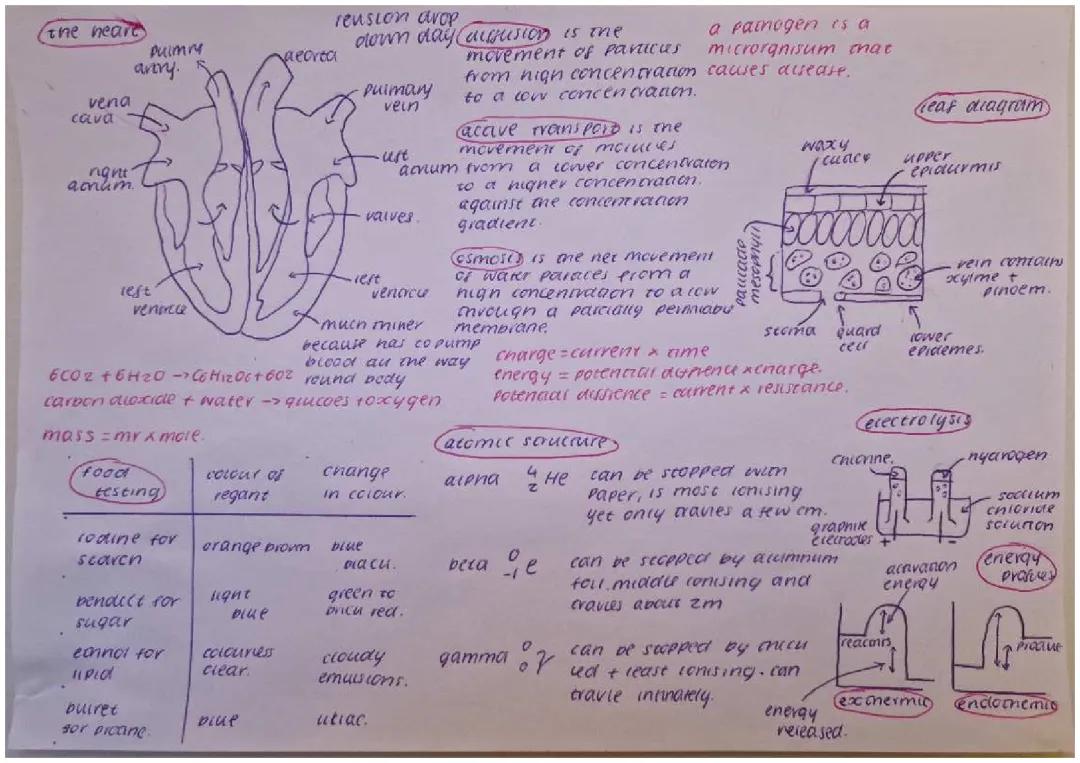 the heart
revision drop
down day
pulmry
artry.
aeorta
vena
cava
pulmary
vein
right
atrium
left
atrium
valves.
left
ventricle
left
ventricle
much thiner
because has to pump
blood all the way
round body
diffusion is the
movement of particles
from high concentration
to a low concentration.
active transport is the
movement of molicules
from a lower concentration
to a higher concentration.
against the concentration
gradient.
osmosis is the net movement
of water particles from a
high concentration to a low
through a partially permiable
membrane.
a pathogen is a
microrgnisum that
causes disease.
leaf diagram
waxy
upper
epidurmis
mesophyll
vein contains
xylme +
phloem.
stoma
guard
cell
lower
epidemes.
6CO2 + 6H2O -> C6H12O6 + 6O2
carbon dioxide + water -> glucoes + oxygen
mass = mr x mole.
charge = current x time
energy = potential x charge.
potential = current x resistance.
food
testing
colour of
regant
change
in colour.
iodine for
starch
orange brown
blue
black.
bendict for
sugar
light
blue
green to
brick red.
for
lipid
colourless
clear.
cloudy
emulsions.
buiret
for
blue
lilac.
atomic structure
alpha 4 2 He can be stopped with
paper, is most ionising
yet only travles a few cm.
beta 0 -1 e can be stopped by alumnum
foil. middle ionising and
travles about 2m
gamma 0 0 γ can be stopped by thick
led + least ionising. can
travle infinately.
electrolysis
chlorine.
hydrogen
sodium
chloride
solution
graphite
electrodes + -
energy
profiles
activation
energy
reactnts
energy
released.
exothermic
product
endothemic